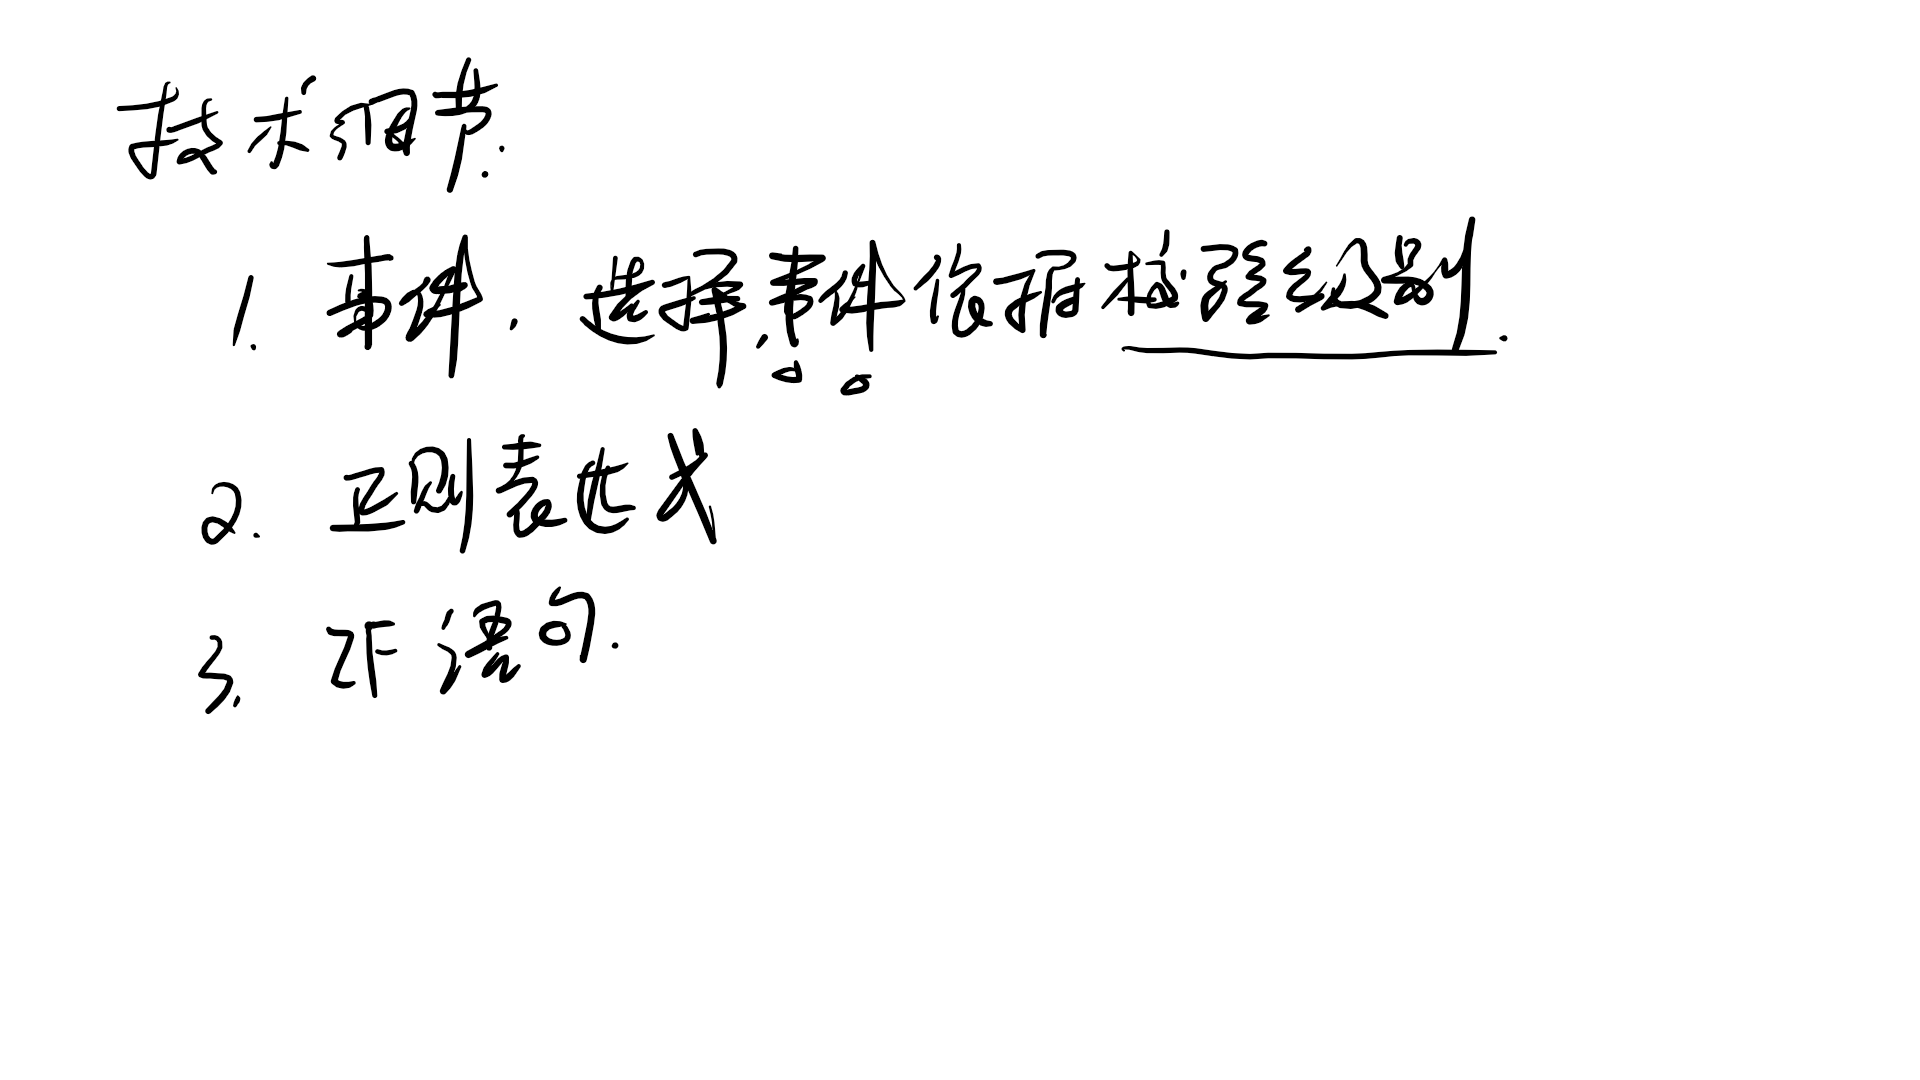 技术细节:
1. 事件, 选择事件依据校验级别.
2. 正则表达式
3. IF 语句.